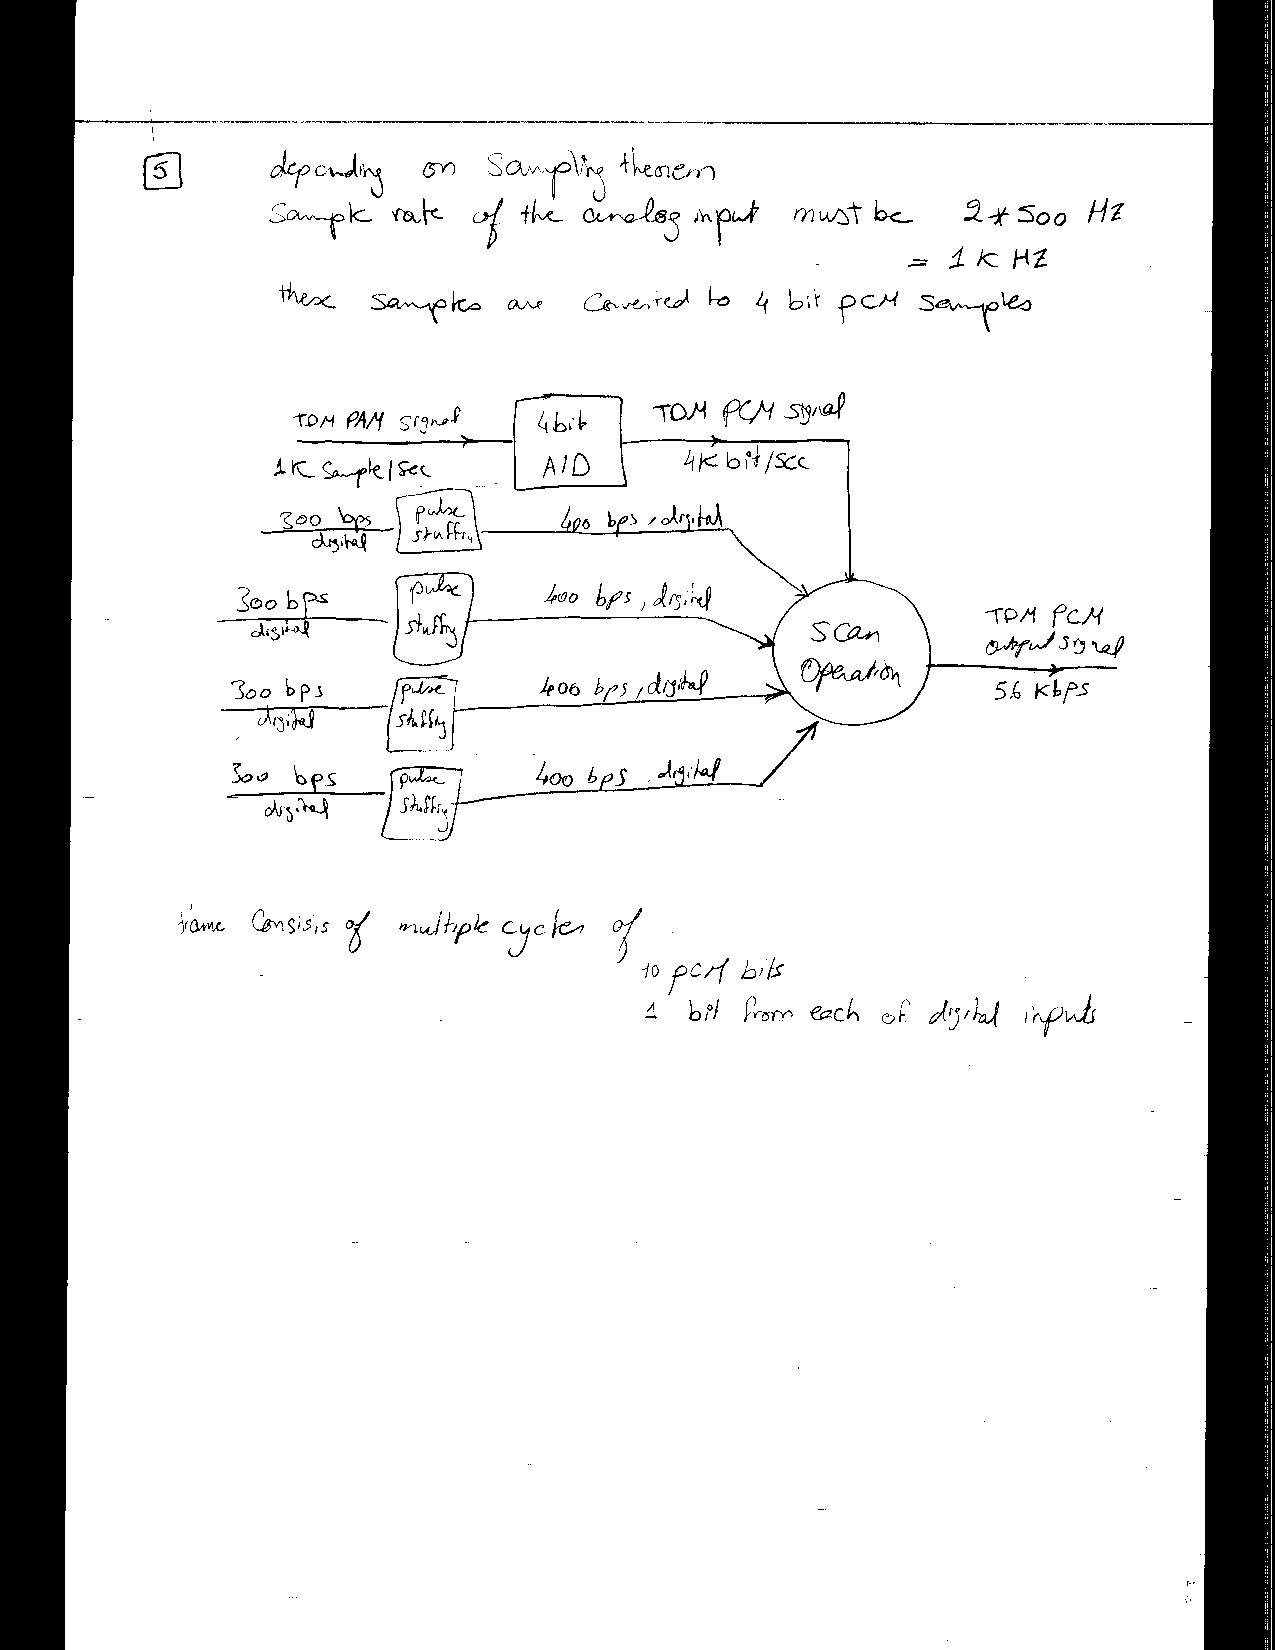 5
depending on Sampling theorem
Sample rate of the analog input must be 2 * 500 HZ
= 1 K HZ
these samples are converted to 4 bit PCM samples
TDM PAM signal
1K Sample/sec
4 bit
A/D
TDM PCM signal
4K bit/sec
300 bps
digital
pulse
stuffing
400 bps, digital
300 bps
digital
pulse
stuffing
400 bps, digital
300 bps
digital
pulse
stuffing
400 bps, digital
300 bps
digital
pulse
stuffing
400 bps, digital
Scan
Operation
TDM PCM
output signal
5.6 Kbps
frame consists of multiple cycles of
10 PCM bits
1 bit from each of digital inputs